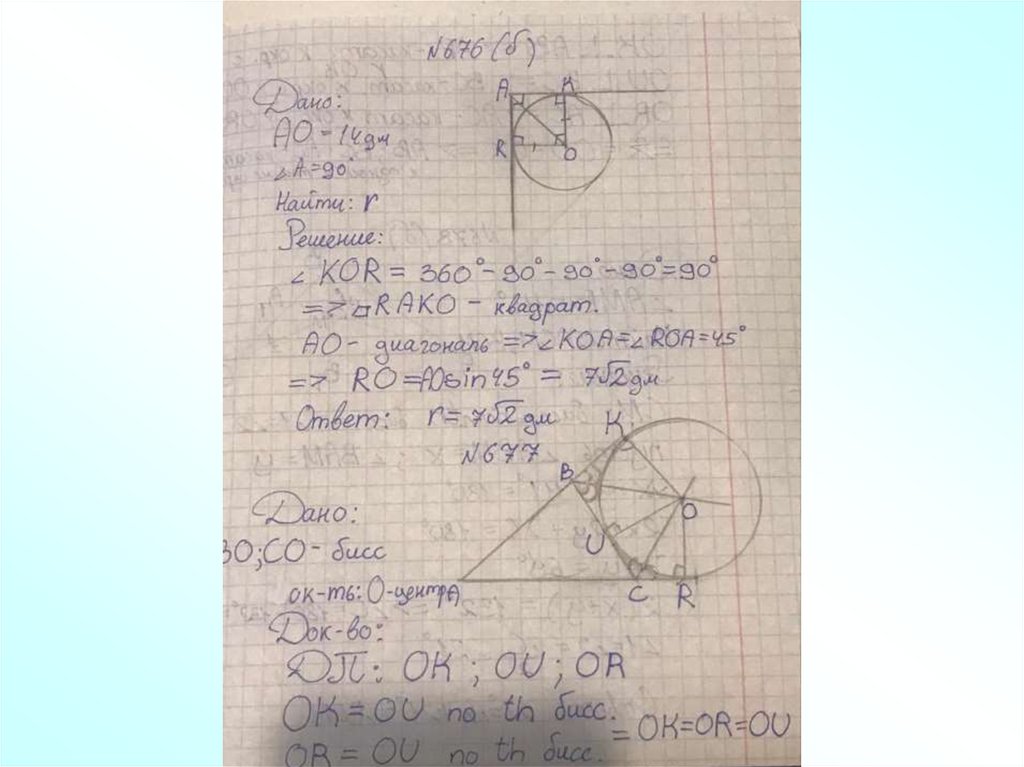 №676 (б)
Дано:
AO = 14 дм
∠A = 90°
Найти: r
A K
R O
Решение:
∠KOR = 360° - 90° - 90° - 90° = 90°
=> □RAKO - квадрат.
AO - диагональ => ∠KOA = ∠ROA = 45°
=> RO = AO sin 45° = 7√2 дм
Ответ: r = 7√2 дм
№677
K
B
O
U
A
C R
Дано:
BO; CO - бисс
ок-ть: O-центр
Док-во:
ДП: OK ; OU ; OR
OK = OU по th бисс.
= OK=OR=OU
OR = OU по th бисс.